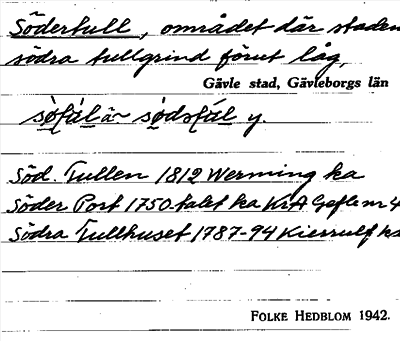 Södertull, området där staden
södra tullgrind förut låg,
Gävle stad, Gävleborgs län
Söd. Tullen 1812 Werming ka
Söder Port 1750-talet ka KrA Gefle nr 4
Södra Tullhuset 1787-94 Kierrulf ka
FOLKE HEDBLOM 1942.